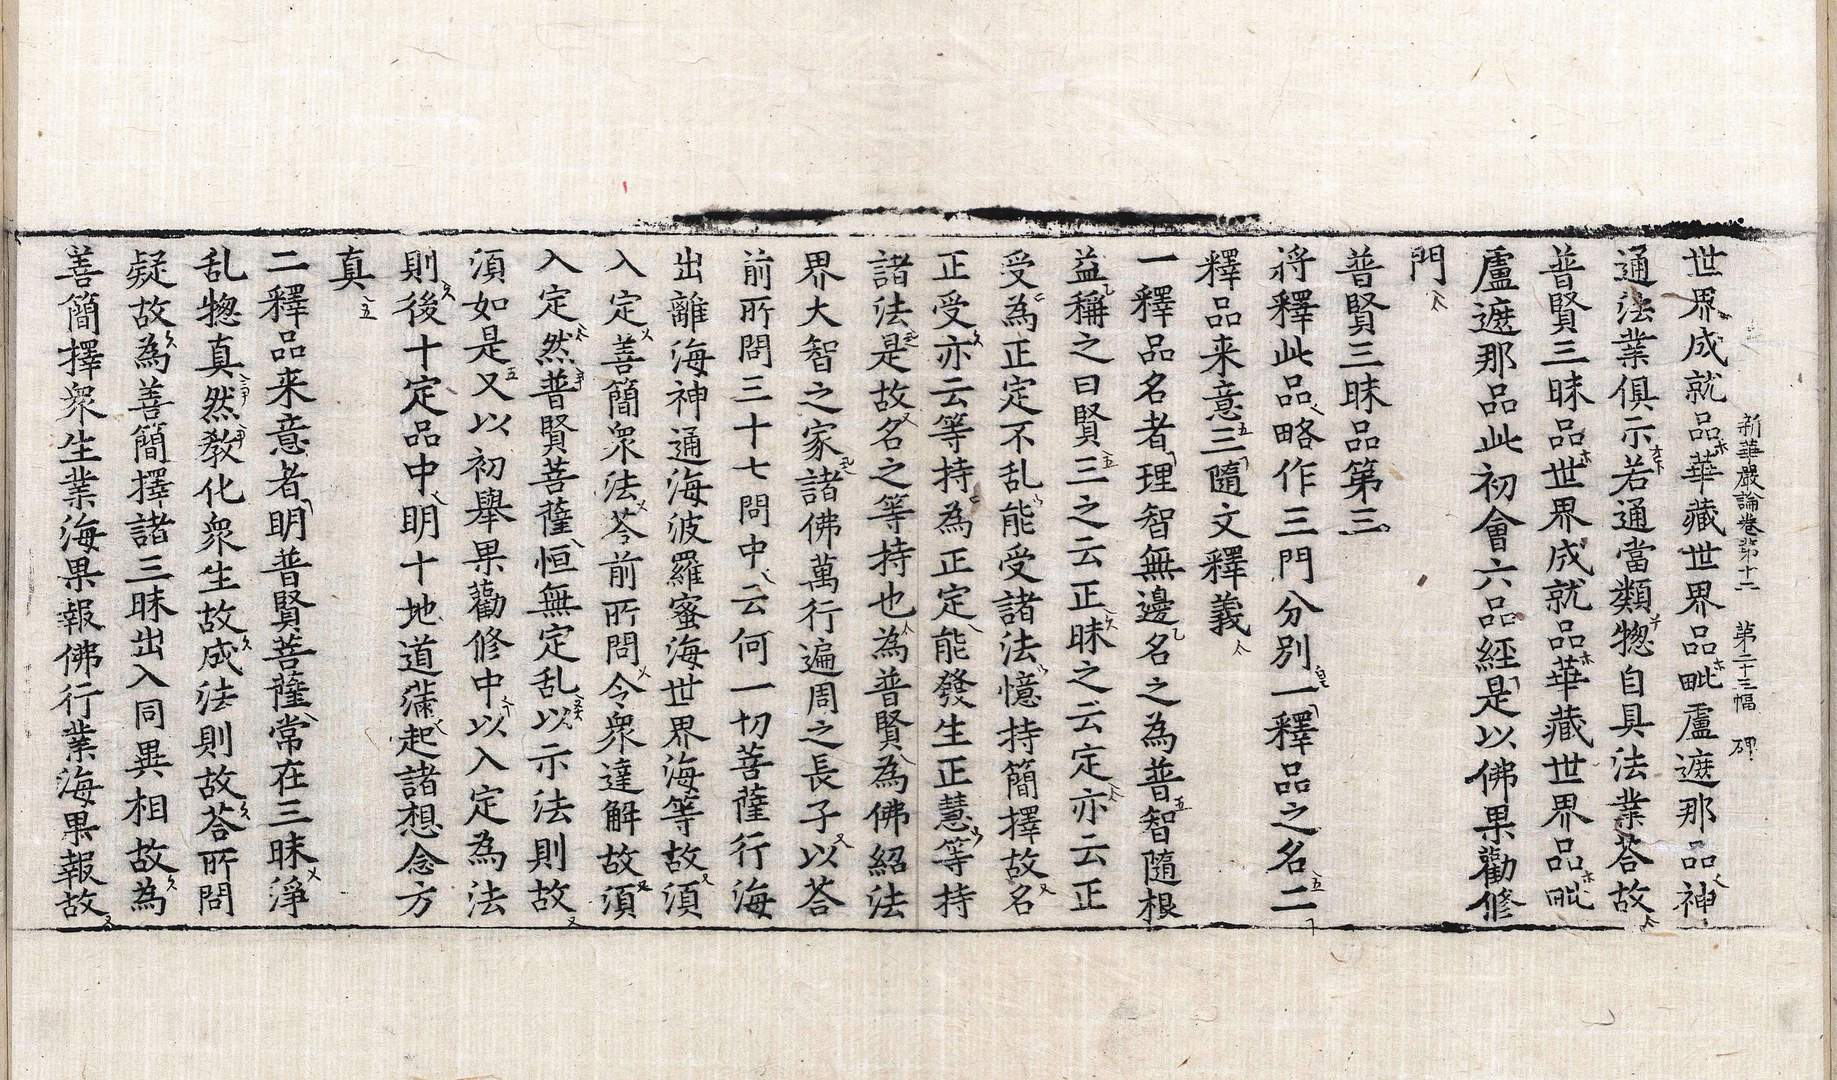 新華嚴論卷第十二 第二十三幅 碑
世界成就品華藏世界品毗盧遮那品神
通法業俱示若通當類惣自具法業荅故
普賢三昧品世界成就品華藏世界品毗
盧遮那品此初會六品經是以佛果勸修
門
普賢三昧品第三
將釋此品略作三門分別一釋品之名二
釋品来意三隨文釋義
一釋品名者理智無邊名之為普智隨根
益稱之曰賢三之云正昧之云定亦云正
受為正定不乱能受諸法憶持簡擇故名
正受亦云等持為正定能發生正慧等持
諸法是故名之等持也為普賢為佛紹法
界大智之家諸佛萬行遍周之長子以荅
前所問三十七問中云何一切菩薩行海
出離海神通海波羅蜜海世界海等故須
入定善簡衆法荅前所問令衆達解故須
入定然普賢菩薩恒無定乱以示法則故
須如是又以初舉果勸修中以入定為法
則後十定品中明十地道滿起諸想念方
真
二釋品来意者明普賢菩薩常在三昧淨
乱惣真然教化衆生故成法則故荅所問
疑故為善簡擇諸三昧出入同異相故為
善簡擇衆生業海果報佛行業海果報故